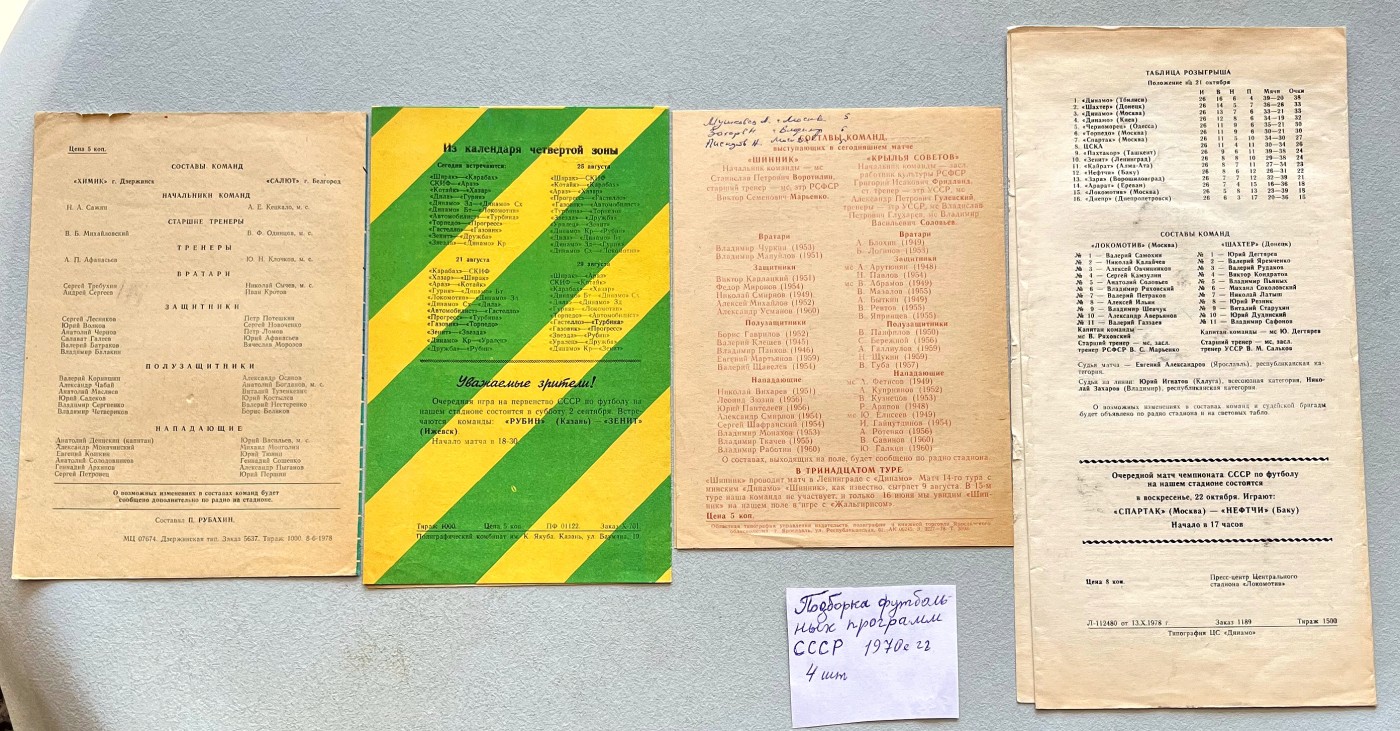 Цена 5 коп.
СОСТАВЫ КОМАНД
«ХИМИК» г. Дзержинск «САЛЮТ» г. Белгород
НАЧАЛЬНИКИ КОМАНД
Н. А. Сажин А. Е. Кецкало, м. с.
СТАРШИЕ ТРЕНЕРЫ
В. Б. Михайловский В. Ф. Одинцов, м. с.
ТРЕНЕРЫ
А. П. Афанасьев Ю. Н. Клочков, м. с.
ВРАТАРИ
Сергей Требухин Николай Сычев, м. с.
Андрей Сергеев Иван Кротов
ЗАЩИТНИКИ
Сергей Лесников Петр Потешкин
Юрий Волков Сергей Новоченко
Анатолий Чернов Петр Чомов
Салават Галеев Юрий Афанасьев
Валерий Батраков Вячеслав Морозов
Владимир Балакин
ПОЛУЗАЩИТНИКИ
Валерий Коранншн Александр Осипов
Александр Чабай Анатолий Богданов, м. с.
Анатолий Масляев Виталий Туменевич
Юрий Садеков Юрий Костылев
Владимир Сергиенко Валерий Нестеренко
Владимир Четвериков Борис Беликов
НАПАДАЮЩИЕ
Анатолий Денискин (капитан) Юрий Васильев, м. с.
Александр Мовчинский Михаил Монголин
Евгений Князкин Юрий Тязин
Анатолий Солодовников Геннадий Сошенко
Геннадий Архипов Александр Цыганов
Сергей Петровец Юрий Першин
О возможных изменениях в составах команд будет
сообщено дополнительно по радио на стадионе.
Составил П. РУБАХИН.
МЦ 07674. Дзержинская тип. Заказ 5637. Тираж 1000. 8-6-1978
Из календаря четвертой зоны
Сегодня встречаются:
«Шираж»—«Карабах»
СКИФ—«Араз»
«Котайк»—«Хазар»
«Дила»—«Гурия»
«Динамо» Зд—«Динамо» Сх
«Динамо» Бт—«Локомотив»
«Автомобилист»—«Турбина»
«Торпедо»—«Прогресс»
«Гастелло»—«Газовик»
«Зенит»—«Дружба»
«Звезда»—«Динамо» Кр
21 августа
«Карабах»—СКИФ
«Хазар»—«Ширак»
«Араз»—«Котайк»
«Гурия»—«Динамо» Бт
«Локомотив»—«Динамо» Зд
«Динамо» Сх—«Дила»
«Автомобилист»—«Гастелло»
«Прогресс»—«Турбина»
«Газовик»—«Торпедо»
«Зенит»—«Звезда»
«Динамо» Кр—«Уралец»
«Дружба»—«Рубин»
25 августа
«Ширак»—СКИФ
«Котайк»—«Карабах»
«Араз»—«Хазар»
«Прогресс»—«Гастелло»
«Газовик»—«Автомобилист»
«Турбина»—«Торпедо»
«Звезда»—«Дружба»
«Уралец»—«Зенит»
«Динамо» Кр—«Рубин»
«Дила»—«Динамо» Бт
«Динамо» Зд—«Гурия»
«Динамо» Сх—«Локомотив»
29 августа
«Ширак»—«Араз»
СКИФ—«Котайк»
«Карабах»—«Хазар»
«Динамо» Бт—«Динамо» Сх
«Динамо» Зд—«Дила»
«Гурия»—«Локомотив»
«Торпедо»—«Автомобилист»
«Гастелло»—«Турбина»
«Газовик»—«Прогресс»
«Звезда»—«Рубин»
«Уралец»—«Дружба»
«Динамо» Кр—«Зенит»
Уважаемые зрители!
Очередная игра на первенство СССР по футболу на
нашем стадионе состоится в субботу 2 сентября. Встре-
чаются команды: «РУБИН» (Казань)—«ЗЕНИТ»
(Ижевск).
Начало матча в 18-30.
Тираж 1000. Цена 5 коп. ПФ 01122. Заказ
Полиграфический комбинат им. К. Якуба. Казань, ул. Баумана, 19.
СОСТАВЫ КОМАНД,
выступающих в сегодняшнем матче
«ШИННИК»
Начальник команды — мс
Станислав Петрович Воротилин,
старший тренер — мс, зтр РСФСР
Виктор Семенович Марьенко.
«КРЫЛЬЯ СОВЕТОВ»
Начальник команды — засл.
работник культуры РСФСР
Григорий Исакович Фридланд,
ст. тренер — зтр УССР, мс
Александр Петрович Гулевский,
тренеры — зтр УССР, мс Владислав
Петрович Глухарев, мс Владимир
Васильевич Соловьев.
Вратари
Владимир Чуркин (1953)
Владимир Мануйлов (1951)
Защитники
Виктор Карлацкий (1951)
Федор Миронов (1954)
Николай Смирнов (1949)
Алексей Михайлов (1952)
Александр Усманов (1960)
Полузащитники
Борис Гаврилов (1952)
Валерий Клешев (1945)
Владимир Панков (1946)
Евгений Мартьянов (1959)
Валерий Щавелев (1951)
Нападающие
Николай Вихарев (1951)
Леонид Зозин (1956)
Юрий Пантелеев (1956)
Александр Смирнов (1954)
Сергей Шафранский (1954)
Владимир Монахов (1953)
Владимир Ткачев (1955)
Владимир Работин (1960)
Вратари
А. Блохин (1949)
Б. Логинов (1953)
Защитники
мс А. Арутюнян (1948)
Н. Павлов (1954)
мс В. Абрамов (1949)
В. Мазалов (1955)
А. Быткин (1949)
В. Ревтов (1955)
В. Янушин (1955)
Полузащитники
В. Панфилов (1950)
С. Бережной (1956)
А. Галиаулов (1959)
Н. Щукин (1959)
В. Губа (1957)
Нападающие
мс А. Фетисов (1949)
А. Куприянов (1952)
В. Кузнецов (1953)
Р. Арипов (1948)
мс Ю. Елисеев (1949)
И. Гайнутдинов (1954)
А. Ротенко (1956)
В. Савинов (1960)
Ю. Галици (1960)
О составах, выходящих на поле, будет сообщено по радио стадиона.
В ТРИНАДЦАТОМ ТУРЕ
«Шинник» проводит матч в Ленинграде с «Динамо». Матч 14-го тура с
минским «Динамо» «Шинник», как известно, сыграет 9 августа. В 15-м
туре наша команда не участвует, и только 16 июня мы увидим «Шин-
ник» на нашем поле в игре с «Жальгирисом».
Цена 5 коп.
ТАБЛИЦА РОЗЫГРЫША
Положение на 21 октября
И В Н П Мячи Очки
1. «Динамо» (Тбилиси) 26 16 6 4 39—20 38
2. «Шахтер» (Донецк) 26 14 5 7 36—26 33
3. «Динамо» (Москва) 26 13 7 6 33—21 33
4. «Динамо» (Киев) 26 12 8 6 34—19 32
5. «Черноморец» (Одесса) 26 11 9 6 35—21 30
6. «Торпедо» (Москва) 26 11 9 6 30—21 30
7. «Спартак» (Москва) 26 11 5 10 34—30 27
8. ЦСКА 26 11 4 11 30—34 26
9. «Пахтакор» (Ташкент) 26 9 6 11 39—38 24
10. «Зенит» (Ленинград) 26 8 8 10 29—38 24
11. «Кайрат» (Алма-Ата) 26 8 7 11 27—34 23
12. «Нефтчи» (Баку) 26 8 6 12 26—31 22
13. «Заря» (Ворошиловград) 26 7 7 12 32—39 21
14. «Арарат» (Ереван) 26 7 4 15 16—36 18
15. «Локомотив» (Москва) 26 5 8 13 23—39 18
16. «Днепр» (Днепропетровск) 26 6 3 17 20—36 15
СОСТАВЫ КОМАНД
«ЛОКОМОТИВ» (Москва) «ШАХТЕР» (Донецк)
№ 1 — Валерий Самохин № 1 — Юрий Дегтярев
№ 2 — Николай Калабчев № 2 — Валерий Яремченко
№ 3 — Алексей Овчинников № 3 — Валерий Рудаков
№ 4 — Сергей Камзулин № 4 — Виктор Кондратов
№ 5 — Анатолий Соловьев № 5 — Владимир Пьяных
№ 6 — Владимир Раховский № 6 — Михаил Соколовский
№ 7 — Валерий Петраков № 7 — Николай Латыш
№ 8 — Алексей Ильин № 8 — Юрий Резник
№ 9 — Владимир Шевчук № 9 — Виталий Старухин
№ 10 — Александр Аверьянов № 10 — Юрий Дудинский
№ 11 — Валерий Газзаев № 11 — Владимир Сафонов
Капитан команды — Капитан команды — мс Ю. Дегтярев
мс В. Раховский
Старший тренер — мс, засл. Старший тренер — мс, засл.
тренер РСФСР В. С. Марьенко тренер УССР В. М. Сальков
Судья матча — Евгений Александров (Ярославль), республиканская ка-
тегория.
Судьи на линии: Юрий Игнатов (Калуга), всесоюзная категория, Нико-
лай Захаров (Владимир), республиканская категория
О возможных изменениях в составах команд и судейской бригады
будет объявлено по радио стадиона и на световых табло.
Очередной матч чемпионата СССР по футболу
на нашем стадионе состоится
в воскресенье, 22 октября. Играют:
«СПАРТАК» (Москва) — «НЕФТЧИ» (Баку)
Начало в 17 часов
Цена 8 коп. Пресс-центр Центрального
стадиона «Локомотив»
Л-112480 от 13.X.1978 г. Заказ 1189 Тираж 1500
Типография ЦС «Динамо»
Подборка футболь-
ных программ
СССР 1970е гг
4 шт